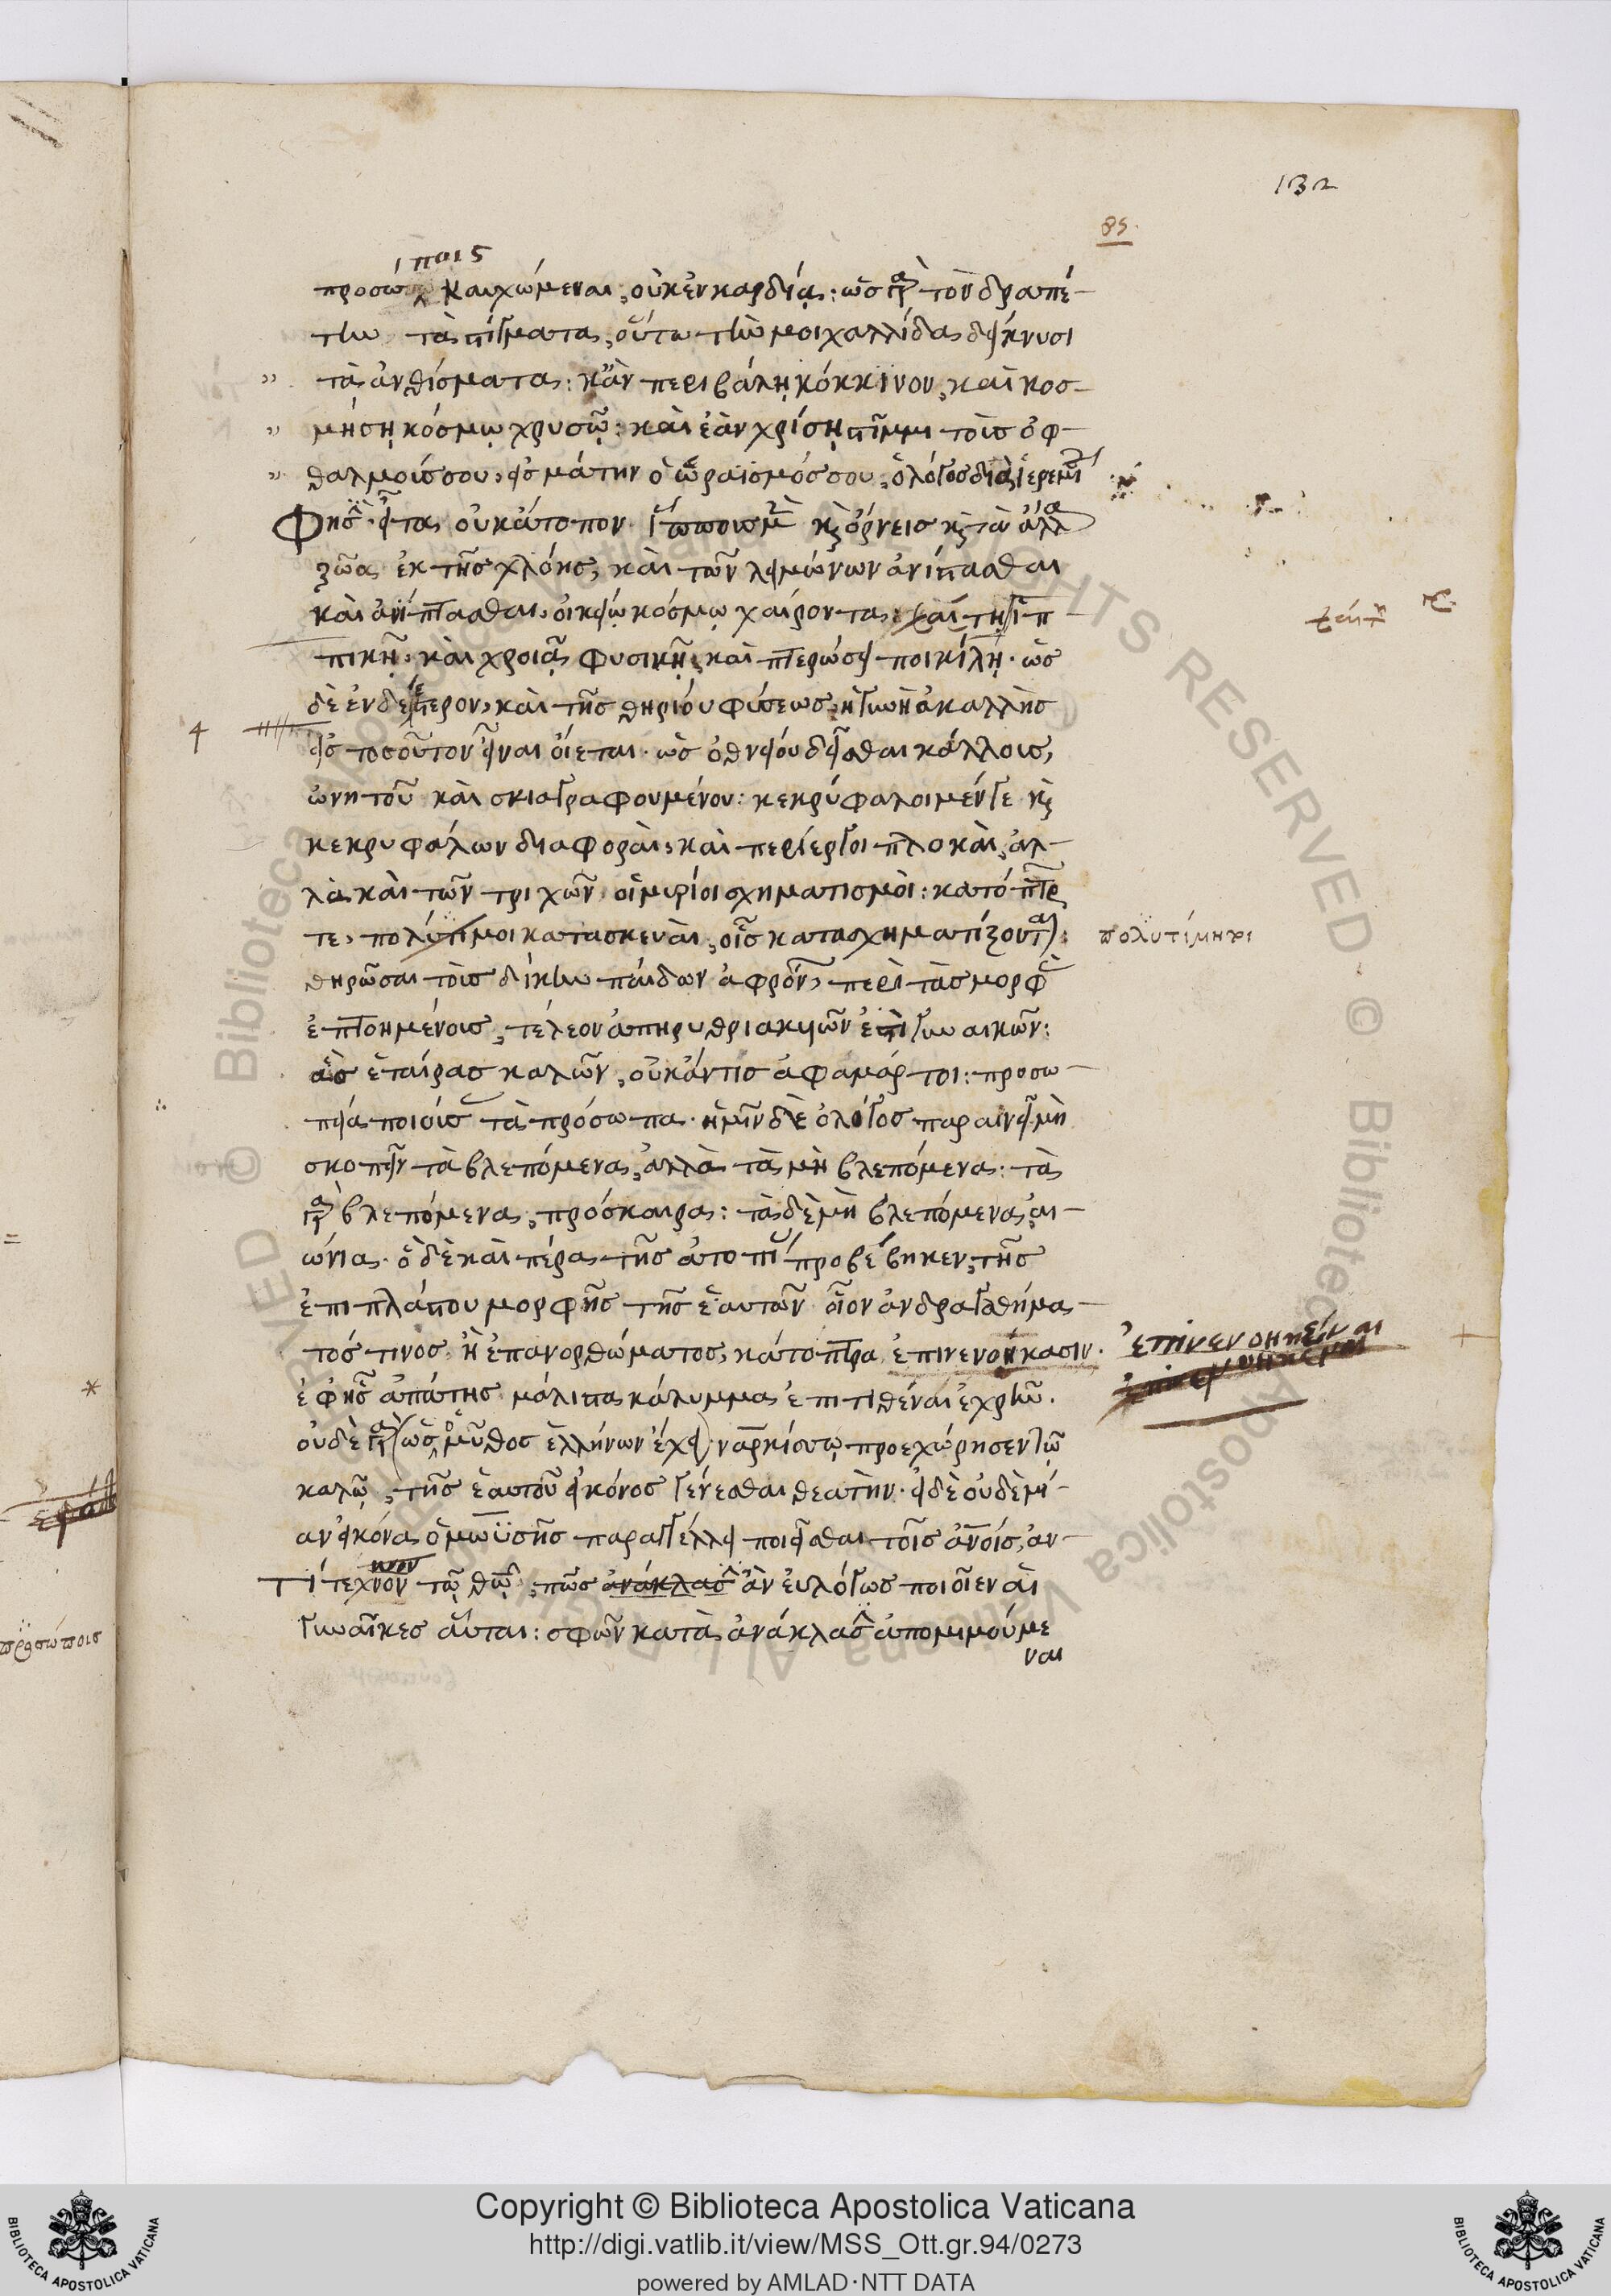 132
85.
ποις
προσώ καυχώμεναι, οὐκ ἐν καρδίᾳ: ὡς γὰρ τὸν δραπέ-
την τὰ στίγματα, οὕτω τὴν μοιχαλλίδα δείκνυσι
τὰ ἀνθίσματα: κἂν περιβάλῃ κόκκινον, καὶ κοσ-
μήσῃ κόσμῳ χρυσῷ: καὶ ἐὰν χρίσῃ στίμμι τοὺς ὀφ-
θαλμούς σου, εἰς μάτην ὁ ὡραϊσμός σου, ὁ λόγος διὰ ἱερεμίου
φησὶν. εἶτα οὐκ ἄτοπον ἵππους μὲν καὶ ὄρνεις καὶ τὰ ἄλλα
ζῶα ἐκ τῆς χλόης, καὶ τῶν λειμώνων ἀνίστασθαι
καὶ ἀνίπτασθαι, οἰκείῳ κόσμῳ χαίροντα: χαίτῃ ἱπ-
πικῇ, καὶ χροιᾷ φυσικῇ, καὶ πτερώσει ποικίλῃ. ὡς
δὲ ἐνδεέστερον, καὶ τῆς θηρίου φύσεως, ἡ γυνὴ ἀκαλλὴς
εἰς τοσοῦτον εἶναι οἴεται. ὡς ὀθνείου δεῖσθαι κάλλους,
ὠνητοῦ καὶ σκιαγραφουμένου: κεκρύφαλοι μέν γε καὶ
κεκρυφάλων διαφοραὶ, καὶ περίεργοι πλοκαὶ, ἀλ-
λὰ καὶ τῶν τριχῶν οἱ μυρίοι σχηματισμοὶ: κατόπτρων
τε, πολύτιμοι κατασκευαὶ, οἷς κατασχηματίζονται:
πολυτίμητοι
θηρῶσαι τοὺς δίκην παίδων ἀφρόνων, περὶ τὰς μορφὰς
ἐπτοημένους, τέλεον ἀπηρυθριακυιῶν ἐστὶ γυναικῶν:
ἃς ἑταίρας καλῶν, οὐκ ἄν τις ἀφαμάρτοι: προσω-
πεῖα ποιοῦσι τὰ πρόσωπα. ἡμῖν δὲ ὁ λόγος παραινεῖ μὴ
σκοπεῖν τὰ βλεπόμενα, ἀλλὰ τὰ μὴ βλεπόμενα: τὰ
γὰρ βλεπόμενα, πρόσκαιρα: τὰ δὲ μὴ βλεπόμενα, αἰ-
ώνια. ὃ δὲ καὶ πέρα τῆς ἀτοπίας προβέβηκεν, τῆς
ἐπιπλάστου μορφῆς τῆς ἑαυτῶν οἷον ἀνδραγαθήμα-
τός τινος ἢ ἐπανορθώματος, κάτοπτρα ἐπινενοήκασιν.
ἐπινενοηκέναι
ἐφ' ἧς ἀπάτης μάλιστα κάλυμμα ἐπιτιθέναι ἐχρῆν.
οὐδὲ γὰρ (ὡς ὁ μῦθος ἑλλήνων ἔχει) ναρκίσσῳ προεχώρησεν τῷ
καλῷ, τῆς ἑαυτοῦ εἰκόνος γενέσθαι θεατὴν. εἰ δὲ οὐδὲ μί-
αν εἰκόνα ὁ μωϋσῆς παραγγέλλει ποιεῖσθαι τοῖς ἀνοῖς, ἀν-
τίτεχνον τῷ θῷ, πῶς ἀνάκλασιν ἂν εὐλόγως ποιοῖεν αἱ
γυναῖκες αὗται: σφῶν κατὰ ἀνάκλασιν ἀπομιμούμε
ναι
προσώποις
Copyright © Biblioteca Apostolica Vaticana
http://digi.vatlib.it/view/MSS_Ott.gr.94/0273
powered by AMLAD·NTT DATA